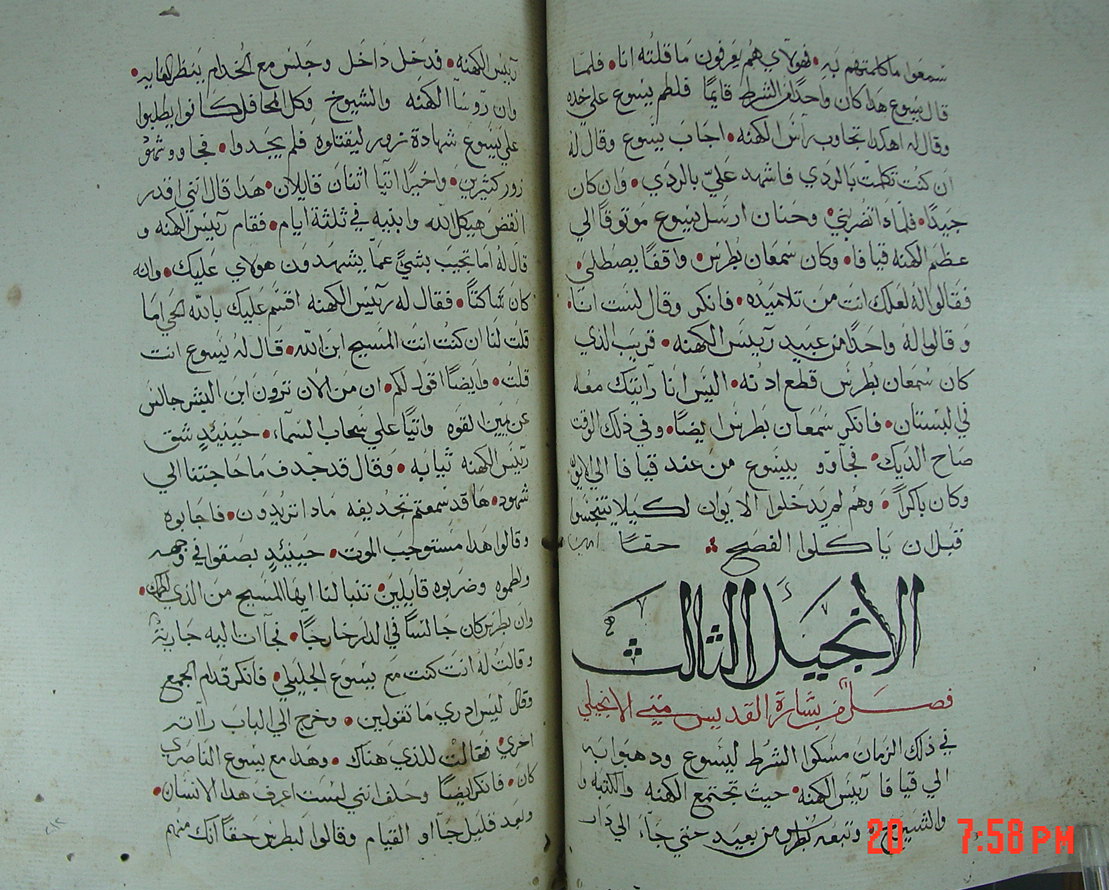 سمعوا ما كلمتهم به • فهولاي هم يعرفون ما قلته انا • فلما
قال يسوع هذا كان واحدًا من الشرط قايمًا فلطم يسوع علي خده
وقال له اهكذا تجاوب رآس الكهنه • اجاب يسوع وقال له
ان كنت تكلمت بالردي فاشهد عليّ بالردي • وان كان
جيدًا • فلماذا تضربني • وحنان ارسل يسوع موتوقًا الي
عظيم الكهنه قيافا • وكان سمعان بطرس • واقفًا يصطلي •
فقالوا له لعلك انت من تلاميذه • فانكر وقال لست انا •
وقالوا له واحدًا من عبيد رييس الكهنه • قريب الذي
كان سمعان بطرس قطع ادنه • اليس انا رآيتك معه
في البستان • فانكر سمعان بطرس ايضًا • وفي ذلك الوقت
صاح الديك • فجاوو بيسوع من عند قيافا الي الايوان
وكان باكرًا • وهم لم يدخلوا الايوان لكيلا يتنجسوا
قبل ان ياكلوا الفصح • حقًا
الانجيل الثالث
فصل من بشارة القديس متي الانجيلي
في ذلك الزمان مسكوا الشرط ليسوع ودهبوا به
الي قيافا رييس الكهنه • حيث تجتمع الكهنه والكتبه و
والشيوخ • وتبعه بطرس من بعيد حتي جآء الي دار
رييس الكهنه • فدخل داخل وجلس مع الخدام ينظر الغايه •
وان روسا الكهنه والشيوخ وكل المحافل كانوا يطلبوا
علي يسوع شهادة زور ليقتلوه فلم يجدوا • فجاوو شهود
زور كثيرين • واخيرًا اتيا اثنان قايلان • هذا قال انني اقدر
انقض هيكل الله وابنيه في ثلثة ايام • فقام رييس الكهنه و
قال له اما تجيب بشيٍ عما يشهدون هولاي عليك • وانه
كان ساكتًا • فقال له رييس الكهنه اقسم عليك بالله الحي اما
قلت لنا ان كنت انت المسيح ابن الله • قال له يسوع انت
قلت • وايضًا اقول لكم • ان من الان ترون ابن البشر جالس
عن يمين القوه واتيًا علي سحاب السمآء • حينيدٍ شق
رييس الكهنه ثيابه • وقال قد جدف ما حاجتنا الي
شهود • ها قد سمعتم تجديفه مادا تريدون • فاجابوه
وقالوا هذا مستوجب الموت • حينيدٍ بصقوا في وجهه
ولطموه وضربوه قايلين • تنبا لنا ايها المسيح من الذي لطمك •
وان بطرس كان جالسًا في الدار خارجًا • فجآت اليه جارية
وقالت له انت كنت مع يسوع الجليلي • فانكر قدام الجمع
وقال ليس ادري ما تقولين • وخرج الي الباب رآته
اخري • فقالت للذي هناك • وهدا مع يسوع الناصري
كان • فانكر ايضًا وحلف انني لست اعرف هدا الانسان •
وبعد قليل جآاو القيام وقالوا لبطرس حقًا انك منهم
20 7:58 PM